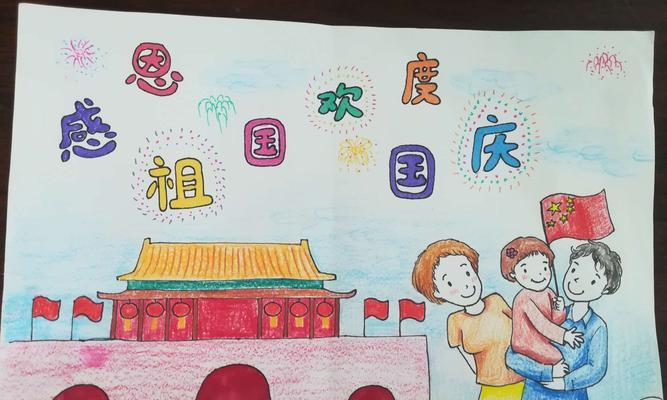 感恩祖国
欢度国庆